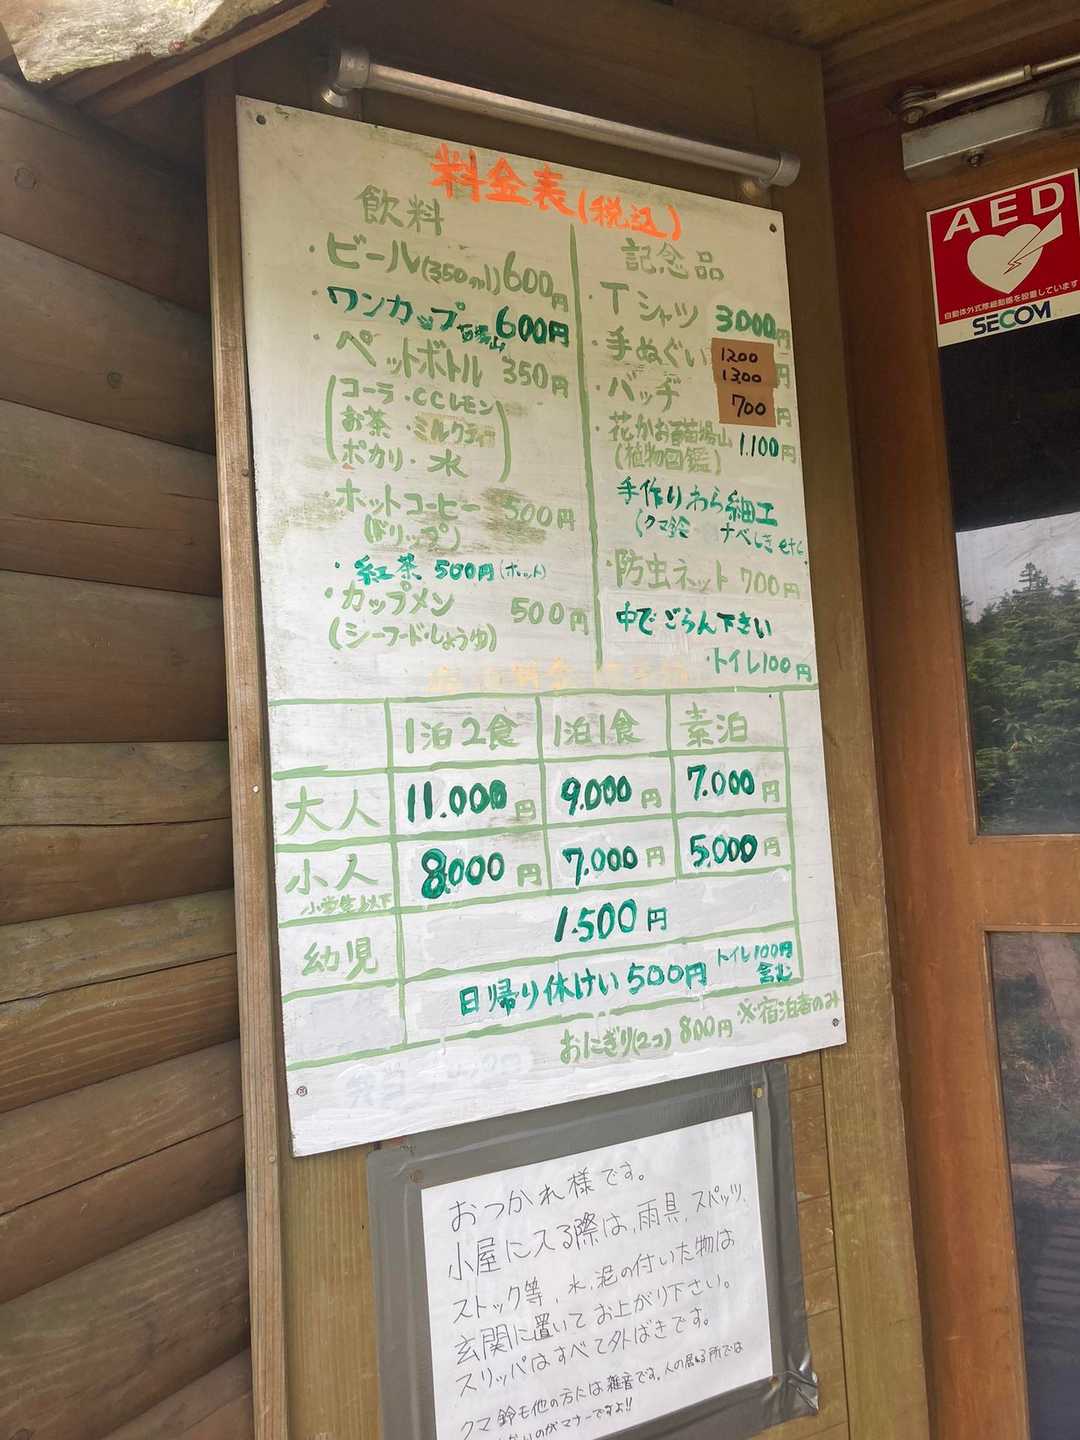 料金表(税込)
飲料
・ビール(350ml)600円
・ワンカップ苗場山600円
・ペットボトル 350円
コーラ・CCレモン
お茶・ミルクティー
ポカリ・水
・ホットコーヒー 500円
(ドリップ)
・紅茶 500円(ホット)
・カップメン 500円
(シーフード・しょうゆ)
記念品
・Tシャツ 3.000円
・手ぬぐい 1200 円
1300
・バッヂ 700 円
・花かお苗場山 1.100円
(植物図鑑)
手作りわら細工
(クマ鈴 ナベしき etc
・防虫ネット 700円
中でごらん下さい
・トイレ100円
1泊2食 1泊1食 素泊
大人 11.000円 9.000円 7.000円
小人 8.000円 7.000円 5.000円
小学生以下
幼児 1.500円
日帰り休けい500円 トイレ100円
含む
おにぎり(2コ) 800円 ※宿泊者のみ
おつかれ様です。
小屋に入る際は、雨具、スパッツ、
ストック等、水、泥の付いた物は
玄関に置いてお上がり下さい。
スリッパはすべて外ばきです。
クマ鈴も他の方には雑音です。人の居る所では
のがマナーですよ!!
AED
自動体外式除細動器を設置しています
SECOM